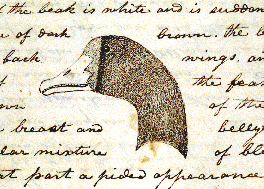 the beak is white and is sudden
of dark brown. the b
back wings, an
the fea
wn of the
breast and belly
lar mixture of bl
at part a pided appearance